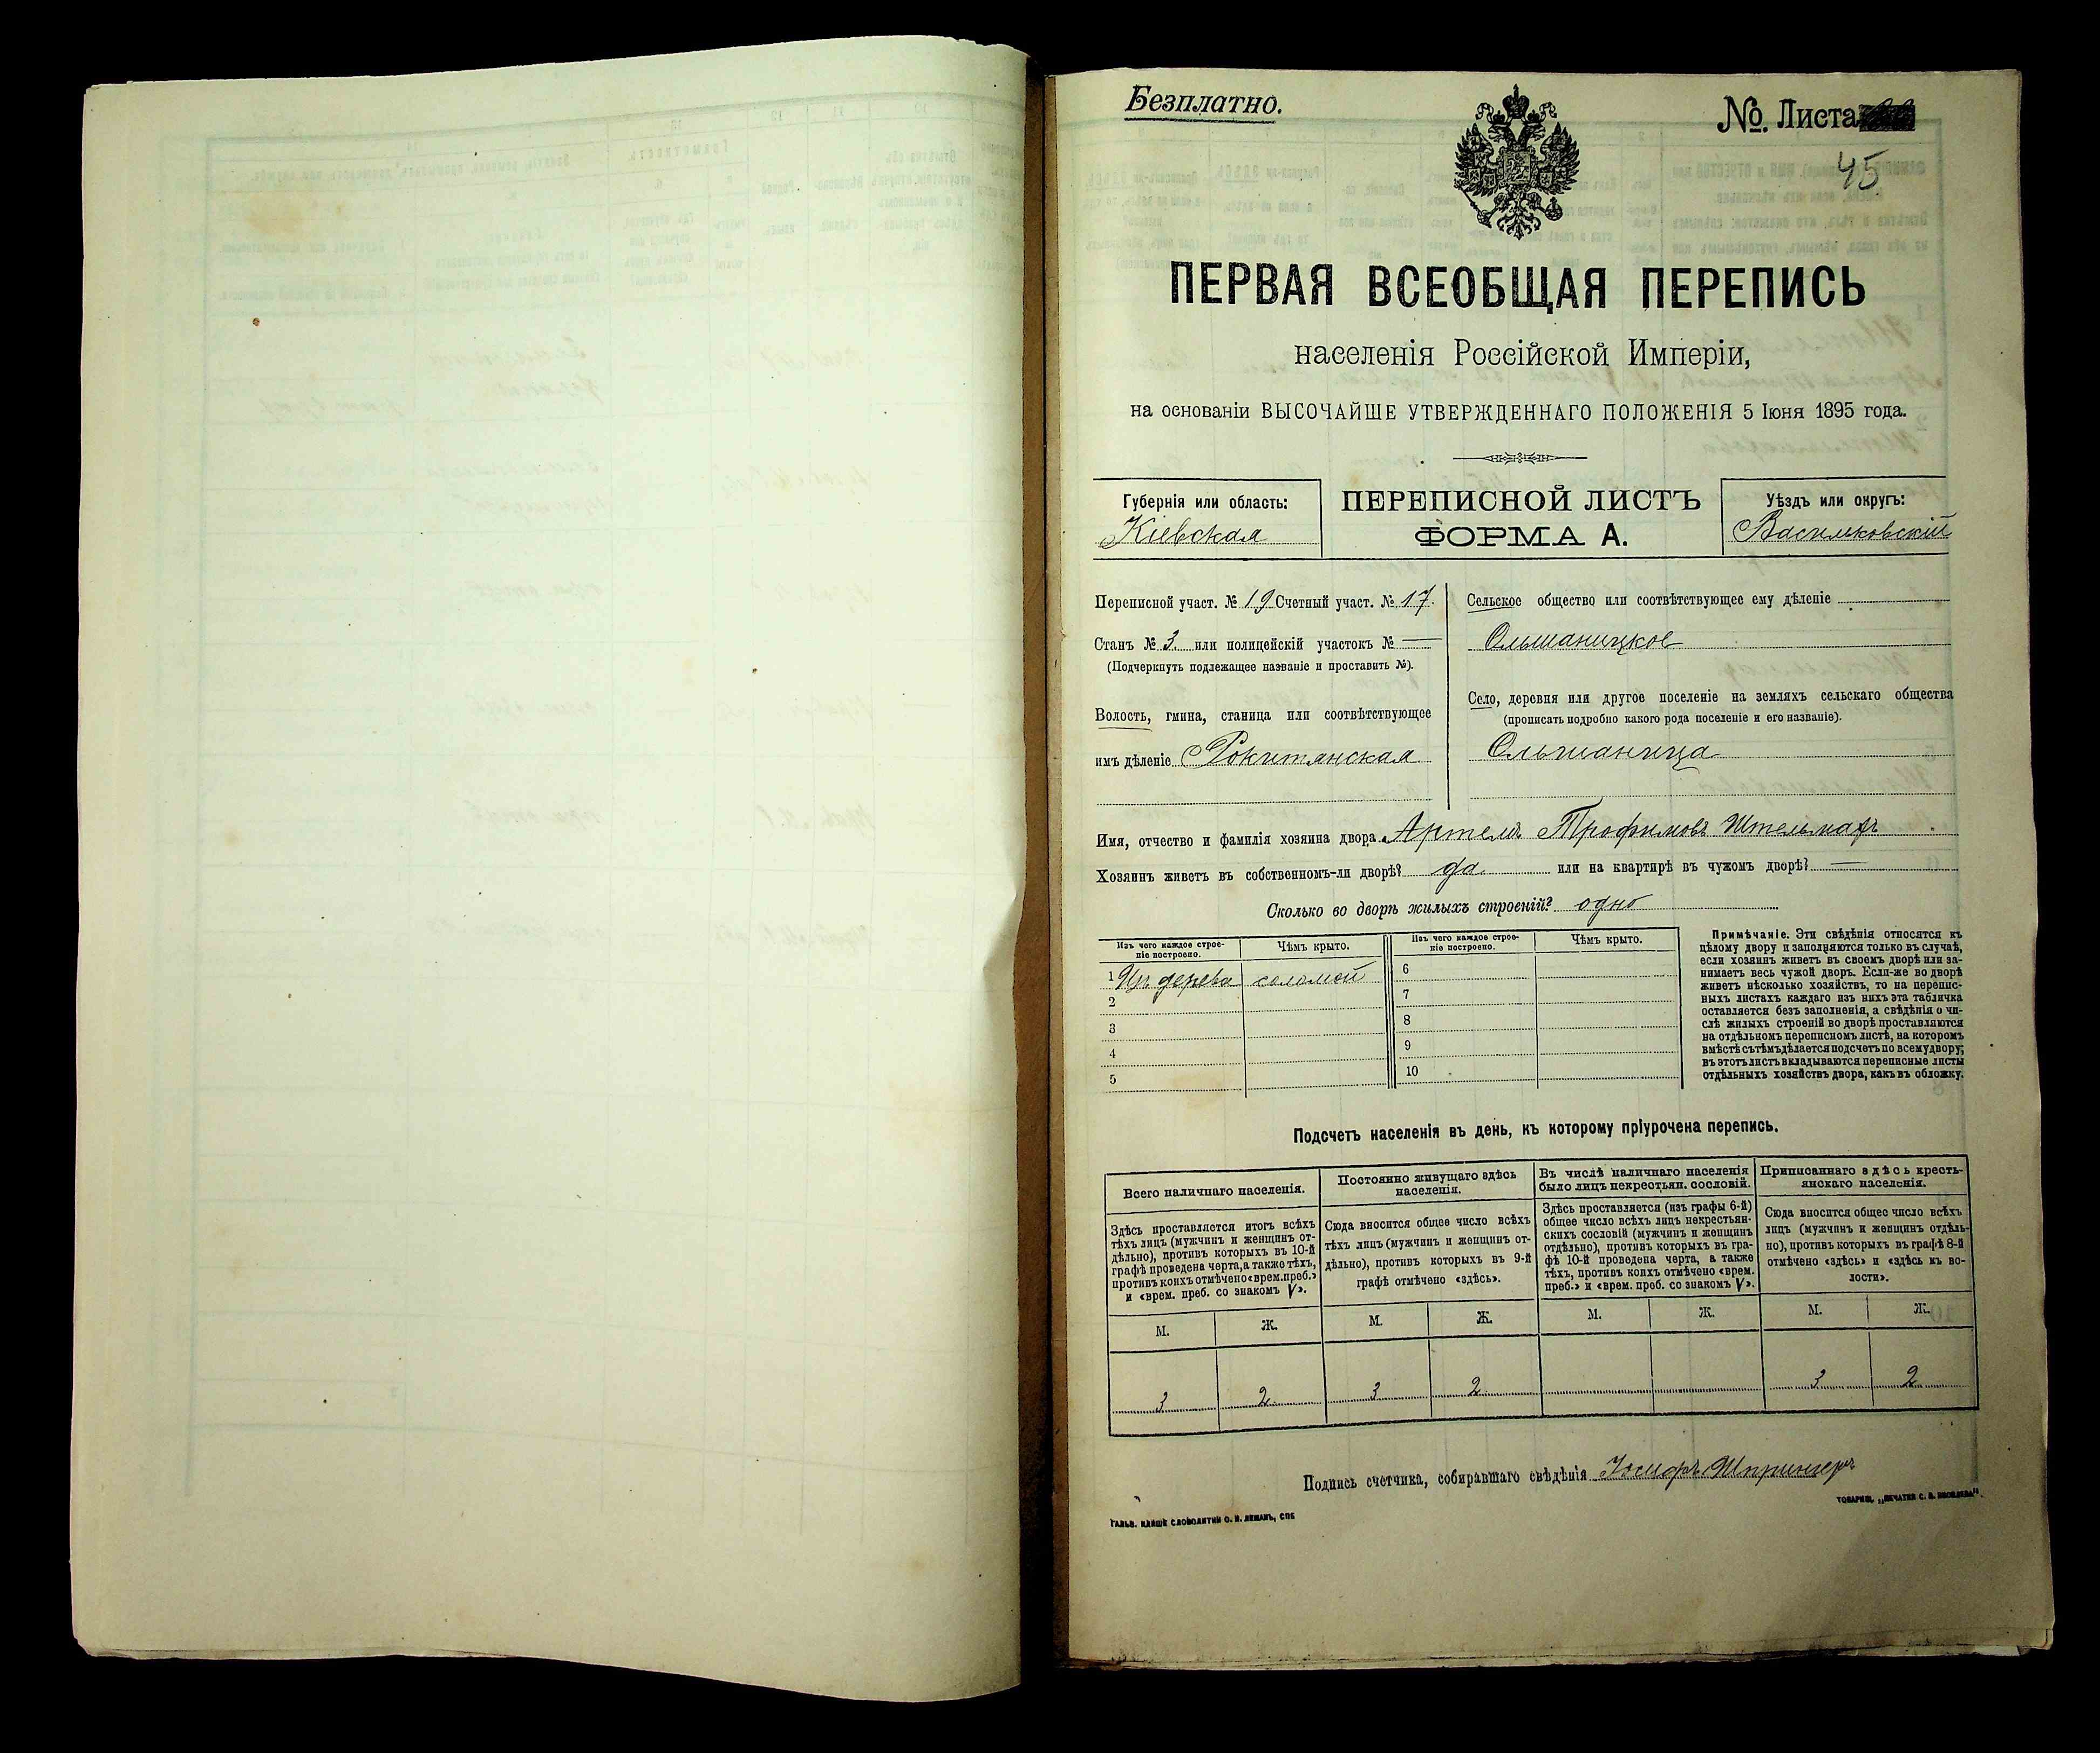 Безплатно.
№ Листа
45
ПЕРВАЯ ВСЕОБЩАЯ ПЕРЕПИСЬ
населенія Россійской Имперіи,
на основаніи ВЫСОЧАЙШЕ УТВЕРЖДЕННАГО ПОЛОЖЕНІЯ 5 Іюня 1895 года.
Губернія или область:
Кіевская
ПЕРЕПИСНОЙ ЛИСТЪ
ФОРМА А.
Уѣздъ или округъ:
Васильковскій
Переписной участ. № 19 Счетный участ. № 17.
Станъ № 3 или полицейскій участокъ № —
(Подчеркнуть подлежащее названіе и проставить №).
Волость, гмина, станица или соотвѣтствующее
имъ дѣленіе Рокитянская
Сельское общество или соотвѣтствующее ему дѣленіе
Ольшаницкое
Село, деревня или другое поселеніе на земляхъ сельскаго общества
(прописать подробно какого рода поселеніе и его названіе).
Ольшаница
Имя, отчество и фамилія хозяина двора Артемъ Трофимовъ Штельмахъ
Хозяинъ живетъ въ собственномъ-ли дворѣ? да или на квартирѣ въ чужомъ дворѣ? —
Сколько во дворѣ жилыхъ строеній? одно
Изъ чего каждое строе-
ніе построено.
Чѣмъ крыто.
Изъ чего каждое строе-
ніе построено.
Чѣмъ крыто.
1 Изъ дерева соломой
2
3
4
5
6
7
8
9
10
Примѣчаніе. Эти свѣдѣнія относятся къ
цѣлому двору и заполняются только въ случаѣ,
если хозяинъ живетъ въ своемъ дворѣ или за-
нимаетъ весь чужой дворъ. Если-же во дворѣ
живетъ нѣсколько хозяйствъ, то на перепис-
ныхъ листахъ каждаго изъ нихъ эта табличка
оставляется безъ заполненія, а свѣдѣнія о чи-
слѣ жилыхъ строеній во дворѣ проставляются
на отдѣльномъ переписномъ листѣ, на которомъ
вмѣстѣ съ тѣмъ дѣлается подсчетъ по всему двору;
въ этотъ листъ вкладываются переписные листы
отдѣльныхъ хозяйствъ двора, какъ въ обложку.
Подсчетъ населенія въ день, къ которому пріурочена перепись.
Всего наличнаго населенія.
Здѣсь проставляется итогъ всѣхъ
тѣхъ лицъ (мужчинъ и женщинъ от-
дѣльно), противъ которыхъ въ 10-й
графѣ проведена черта, а также тѣхъ,
противъ коихъ отмѣчено «врем. преб.»
и «врем. преб. со знакомъ V».
Постоянно живущаго здѣсь
населенія.
Сюда вносится общее число всѣхъ
тѣхъ лицъ (мужчинъ и женщинъ от-
дѣльно), противъ которыхъ въ 9-й
графѣ отмѣчено «здѣсь».
Въ числѣ наличнаго населенія
было лицъ некрестьян. сословій.
Здѣсь проставляется (изъ графы 6-й)
общее число всѣхъ лицъ некрестьян-
скихъ сословій (мужчинъ и женщинъ
отдѣльно), противъ которыхъ въ гра-
фѣ 10-й проведена черта, а также
тѣхъ, противъ коихъ отмѣчено «врем.
преб.» и «врем. преб. со знакомъ V».
Приписаннаго здѣсь кресть-
янскаго населенія.
Сюда вносится общее число всѣхъ
лицъ (мужчинъ и женщинъ отдѣль-
но), противъ которыхъ въ графѣ 8-й
отмѣчено «здѣсь» и «здѣсь къ во-
лости».
М. Ж. М. Ж. М. Ж. М. Ж.
3 2 3 2 3 2
Подпись счетчика, собиравшаго свѣдѣнія Іосифъ Шпрингеръ
ТОВАРИЩ. „ПЕЧАТНЯ С. П. ЯКОВЛЕВА“.
СЛОВОЛИТНИ О. И. ЛЕМАНЪ, СПБ